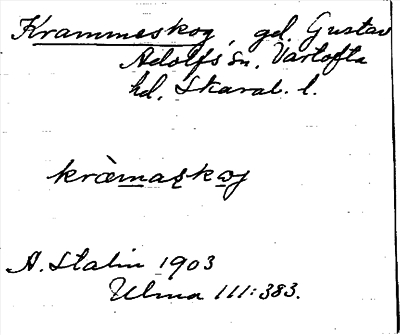 Krammeskog, gd. Gustav
Adolfs sn. Vartofta
hd. Skarab. l.
kràmaskoj
A. Stalin 1903
Ulma 111:383.